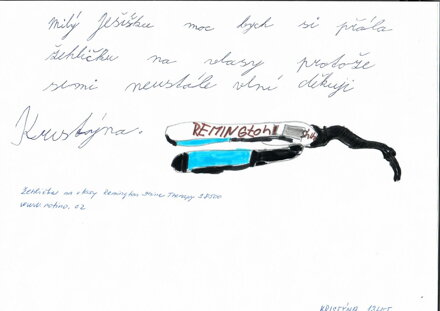 milý Ježíšku moc bych si přála
žehličku na vlasy protože
se mi neustále vlní děkuji
Kristýna.
REMINGtoN
Žehlička na vlasy Remington Shine Therapy S8500
www.notino.cz
KRISTÝNA 13LET